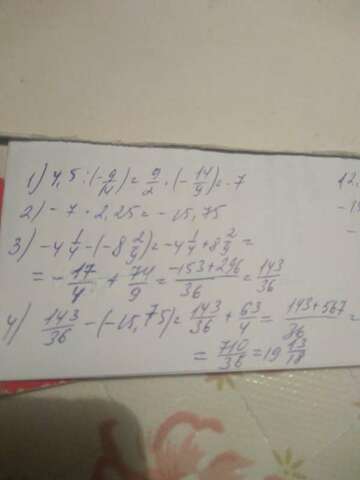 1) 4,5 : (-9/14) = 9/2 · (-14/9) = -7
12.
2) -7 · 2,25 = -15,75
3) -4 1/4 - (-8 2/9) = -4 1/4 + 8 2/9 =
= -17/4 + 74/9 = -153+296/36 = 143/36
4) 143/36 - (-15,75) = 143/36 + 63/4 = 143+567/36 =
= 710/36 = 19 13/18